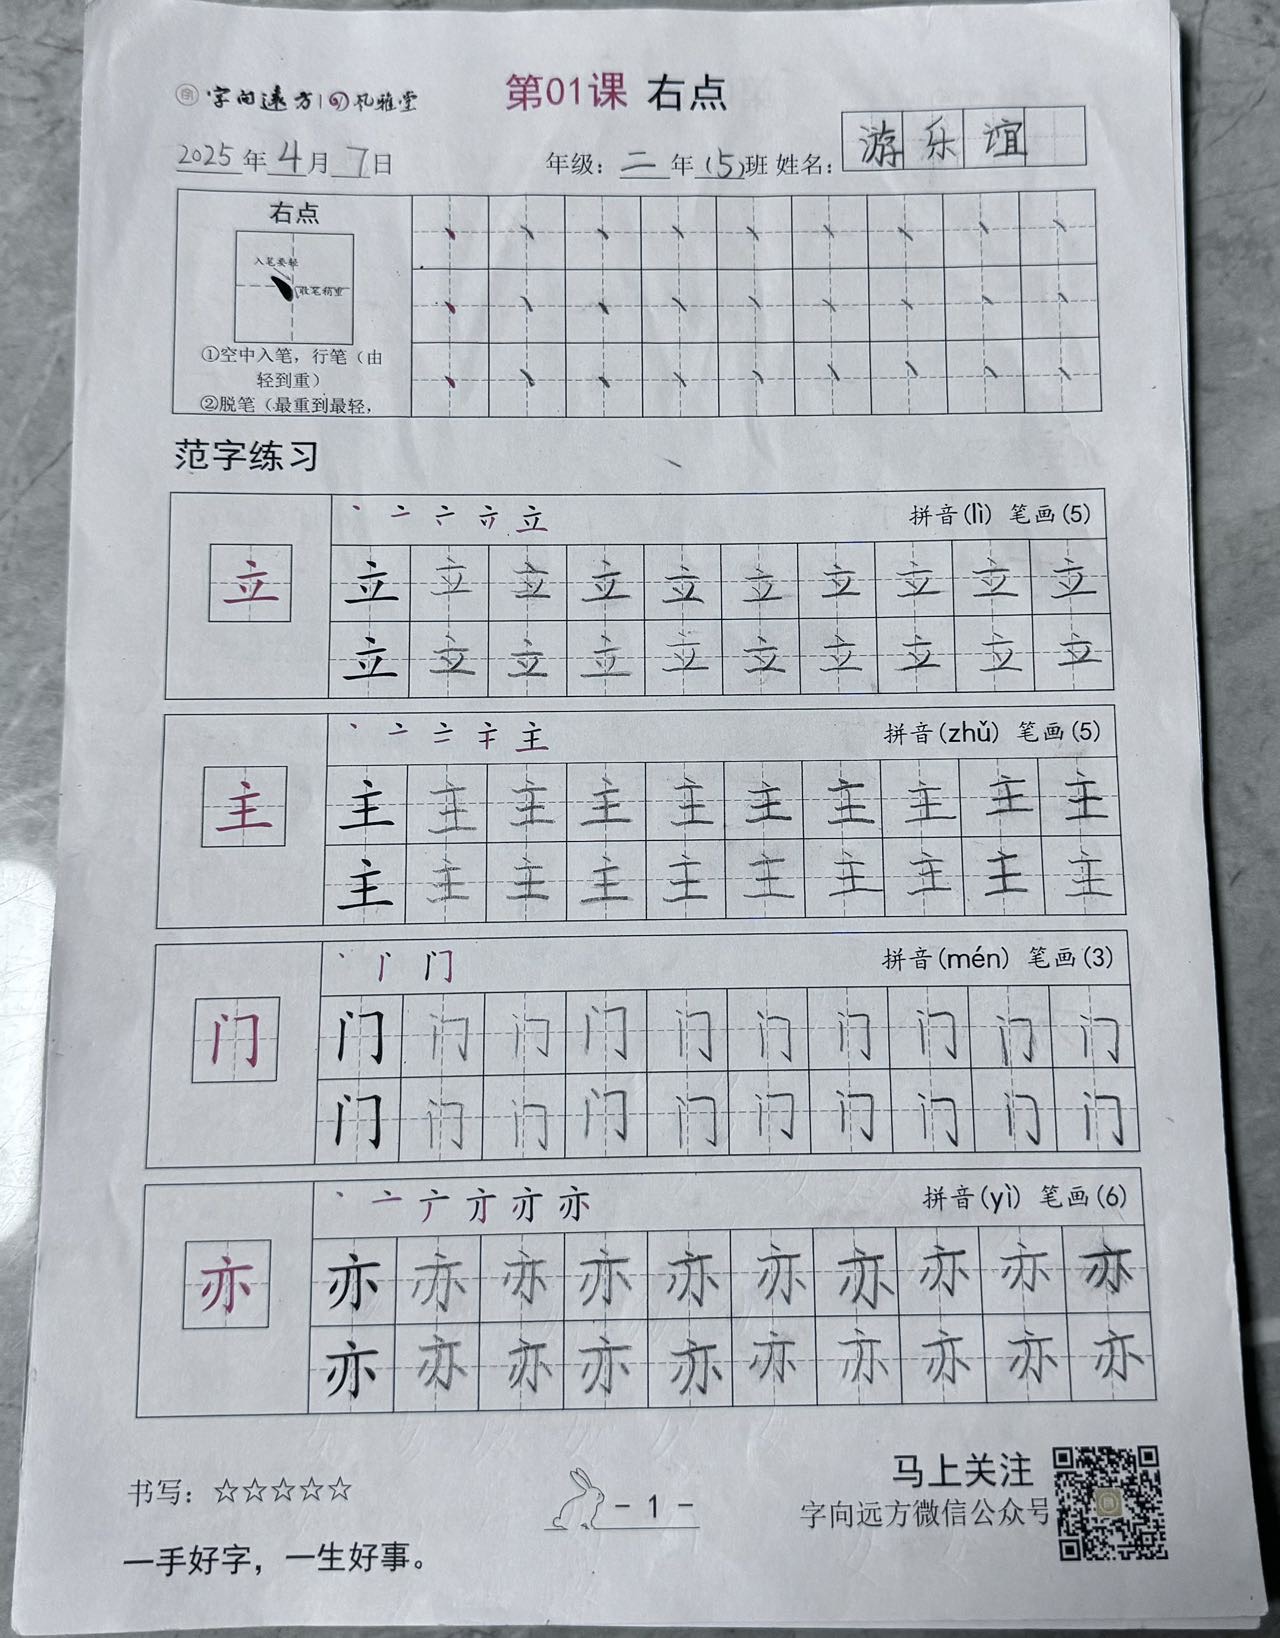 字向远方 风雅堂
第01课 右点
2025年4月7日 年级：二年(5)班 姓名：游乐谊
右点
入笔要轻
收笔稍重
①空中入笔，行笔（由
轻到重）
②脱笔（最重到最轻，
范字练习
拼音(lì) 笔画(5)
立 立 立 立 立 立 立 立 立 立 立
立 立 立 立 立 立 立 立 立 立
拼音(zhǔ) 笔画(5)
主 主 主 主 主 主 主 主 主 主 主
主 主 主 主 主 主 主 主 主 主
拼音(mén) 笔画(3)
门 门 门 门 门 门 门 门 门 门 门
门 门 门 门 门 门 门 门 门 门
拼音(yì) 笔画(6)
亦 亦 亦 亦 亦 亦 亦 亦 亦 亦 亦
亦 亦 亦 亦 亦 亦 亦 亦 亦 亦
书写：☆☆☆☆☆
- 1 -
马上关注
字向远方微信公众号
一手好字，一生好事。